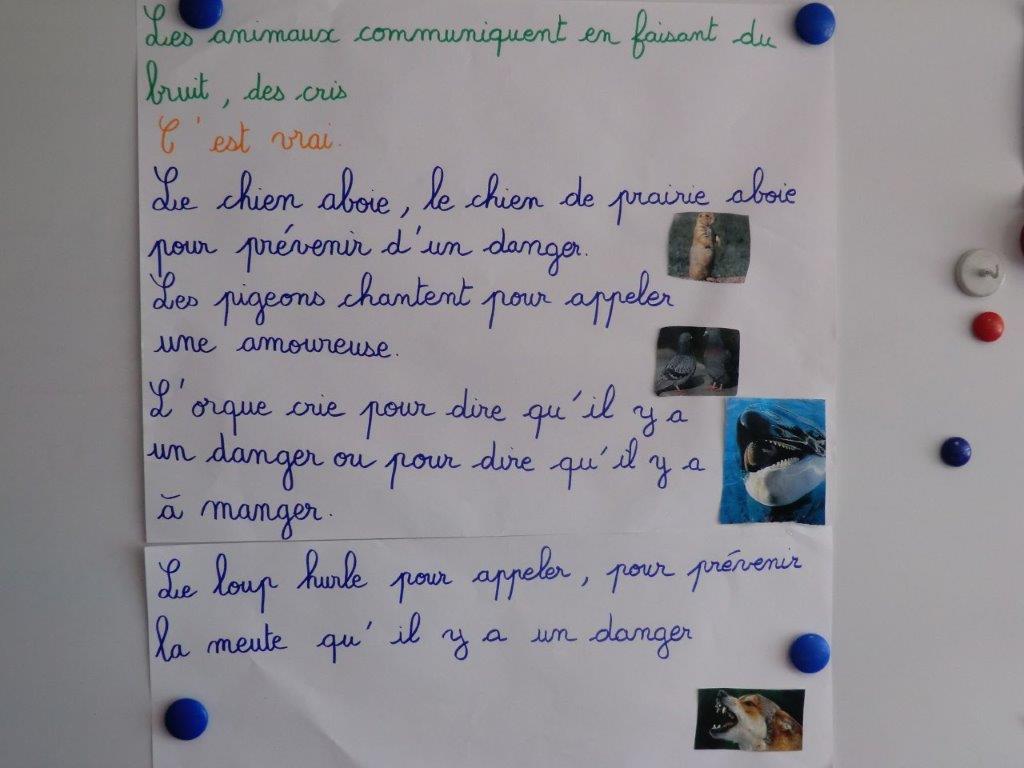 Les animaux communiquent en faisant du
bruit, des cris
C'est vrai.
Le chien aboie, le chien de prairie aboie
pour prévenir d'un danger.
Les pigeons chantent pour appeler
une amoureuse.
L'orque crie pour dire qu'il y a
un danger ou pour dire qu'il y a
à manger.
Le loup hurle pour appeler, pour prévenir
la meute qu'il y a un danger